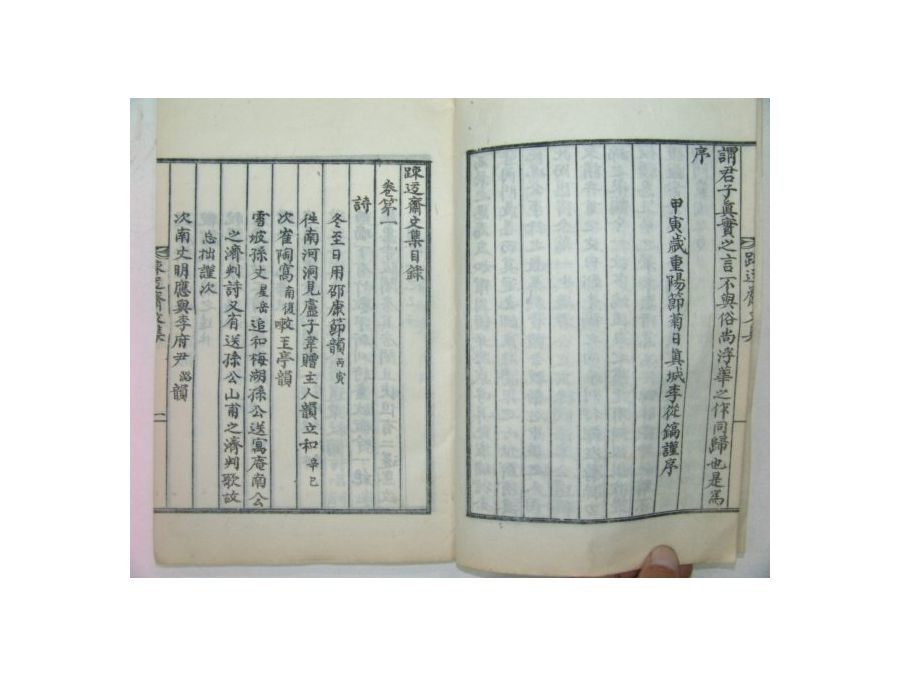 謂君子眞實之言不與俗尚浮華之作同歸也是爲
序
甲寅歲重陽節菊日眞城李從鎬謹序
踈迃齋文集目錄
卷第一
詩
冬至日用邵康節韻 丙寅
徃南河洞見盧子韋贈主人韻立和 辛巳
次崔陶窩 南復 喚主亭韻
雪坡孫丈 星岳 追和梅湖孫公送寓庵南公
之濟判詩又有送孫公山甫之濟判歌故
忘拙謹次
次南丈明應與李府尹 潞 韻